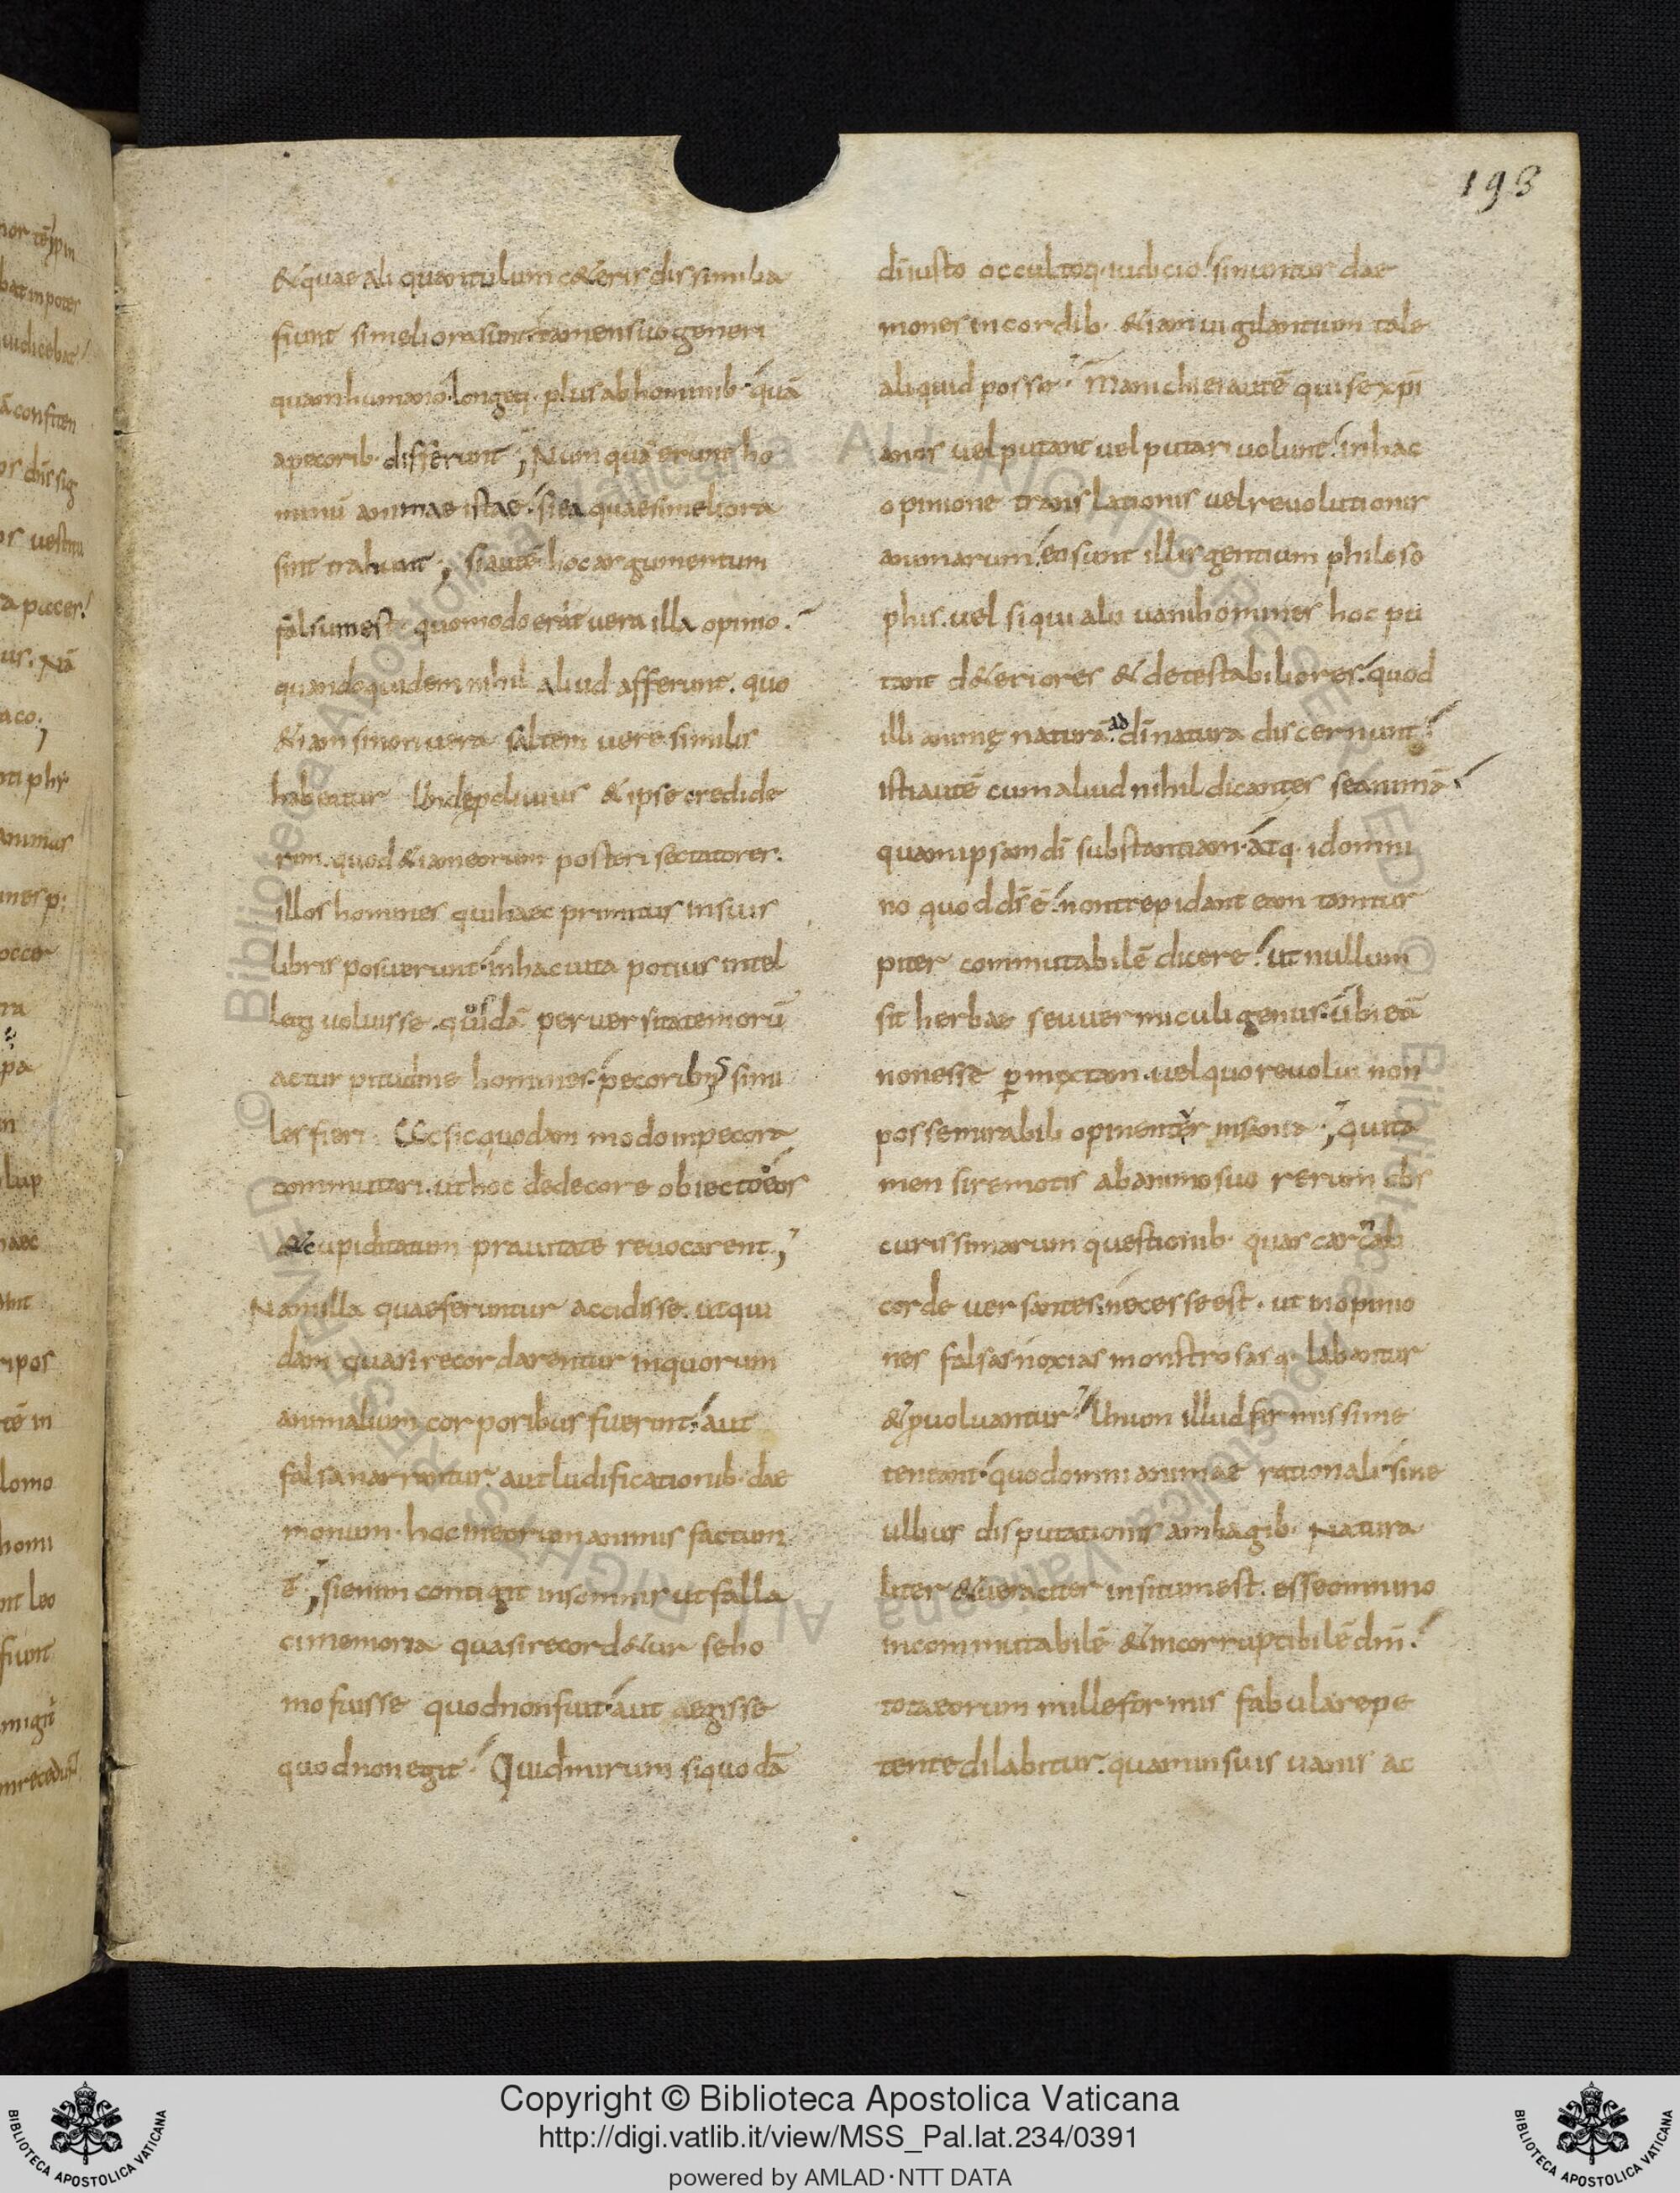 193
&quae aliquantulum c&eris dissimilia
fiunt si meliora sint. tamen suo generi
quam humano longeq· plus ab hominib· quā
a pecorib· differunt; Numquā erunt ho
minū animae istae. si ea quae sim meliora
sint trahunt; si autē hoc argumentum
falsum est quomodo erit vera illa opinio.
quando quidem nihil aliud afferunt. quo
&iam si non vera saltem vere similis
habeatur Unde proclivius & ipse credide
rim. quod &iam eorum posteri sectatores.
illos homines qui haec primitus in suis
libris posuerunt. in hac vita potius intel
legi voluisse. quadā perversitate morū
ac turpitudine homines. pecoribus simi
les fieri Ac sic quodam modo in pecora
commutari. ut hoc dedecore obiecto eos
a cupiditatum pravitate revocarent;
Nam illa quae feruntur accidisse. ut qui
dam quasi recordarentur in quorum
animalium corporibus fuerint. aut
falsa narrantur. aut ludificationib· dae
monum· hoc in eorum animis factum
ē; si enim contigit in somnis ut falla
ci memoria quasi record&ur se ho
mo fuisse quod non fuit. aut aegisse
quod non egit. Quid mirum si quodā
dī iusto occultoq· iudicio. sinuntur dae
mones in cordib· &iam vigilantium tale
aliquid posse. Manichei autē qui se xpī
anos vel putant vel putari volunt. in hac
opinione translationis vel revolutionis
animarum. eo sunt illis gentium philoso
phis. vel si qui alii vani homines hoc pu
tant d&eriores & detestabiliores. quod
illi animę naturā ad dī natura discernunt.
isti autē cum aliud nihil dicant esse animā
quam ipsam dī substantiam. atq· id omni
no quod dī ē. non trepidant eam tam tur
piter commutabilē dicere. ut nullum
sit herbae seu vermiculi genus. ubi eā
non esse p̄mixtam. vel quo revolvi non
posse mirabili opinentur insania; qui ta
men si remotis ab animo suo rerum obs
curissimarum questionib· quas carnali
corde versantes. necesse est. ut in opinio
nes falsas noxias monstrosasq· labantur
& pvoluantur. Unum illud firmissime
teneant. quod omni animae rationali. sine
ullius disputationis ambagib· Natura
liter & veraciter insitum est. esse omnino
incommutabilē & incorruptibilē dm̄.
tota eorum milleformis fabula repe
tente dilabitur. quam in suis vanis ac
Copyright © Biblioteca Apostolica Vaticana
http://digi.vatlib.it/view/MSS_Pal.lat.234/0391
powered by AMLAD·NTT DATA